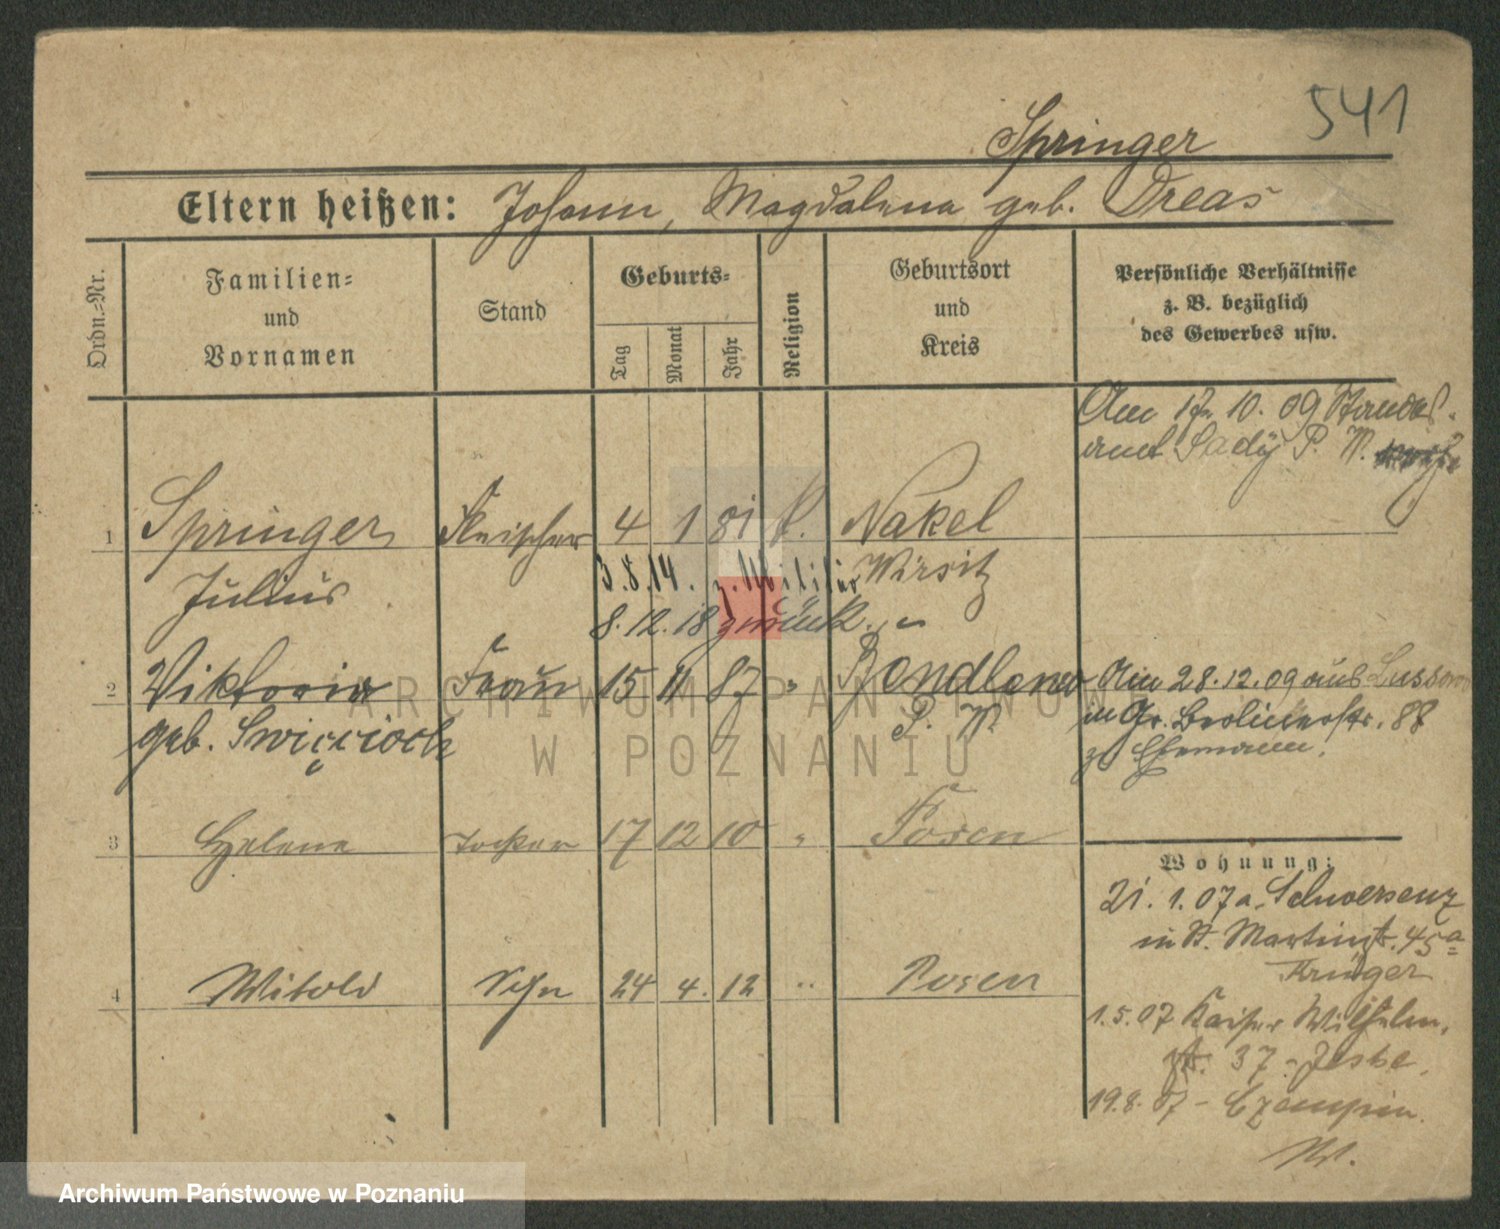 541
Springer
Eltern heißen: Johann, Magdalena geb. Dreas
Ordn.=Nr.
Familien=
und
Vornamen
Stand
Geburts=
Tag
Monat
Jahr
Religion
Geburtsort
und
Kreis
Persönliche Verhältnisse
z. B. bezüglich
des Gewerbes usw.
Am 17. 10. 09 Standes-
amt Sady P. W.
1 Springer Fleischer 4 1 81 k. Nakel
Julius 3.8.14. z. Militär Wirsitz
8.12.18 zurück.
2 Viktoria Frau 15 11 87 " Bendlewo
geb. P. W.
Am 28.12.09 aus Lussowo
in Gr. Berlinerstr. 88
z. Ehemann.
3 Helene Tochter 17 12 10 " Posen
4 Witold Sohn 24 4. 12 " Posen
Wohnung:
21. 1. 07 a. Schwersenz
in St. Martinstr. 45a
Krüger
1.5.07 Kaiser Wilhelm-
str. 37 - Jeske.
19.8.07 - Czempin.
ARCHIWUM PAŃSTWOW
W POZNANIU
Archiwum Państwowe w Poznaniu